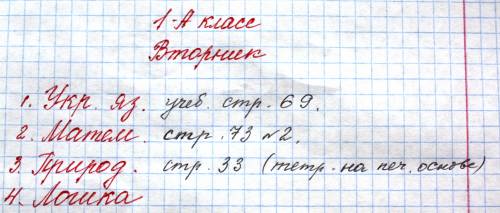 1-А класс
Вторник
1. Укр. яз. учеб. стр. 69.
2. Матем. стр. 73 №2.
3. Природ. стр. 33 (тетр. на печ. основе)
4. Логика